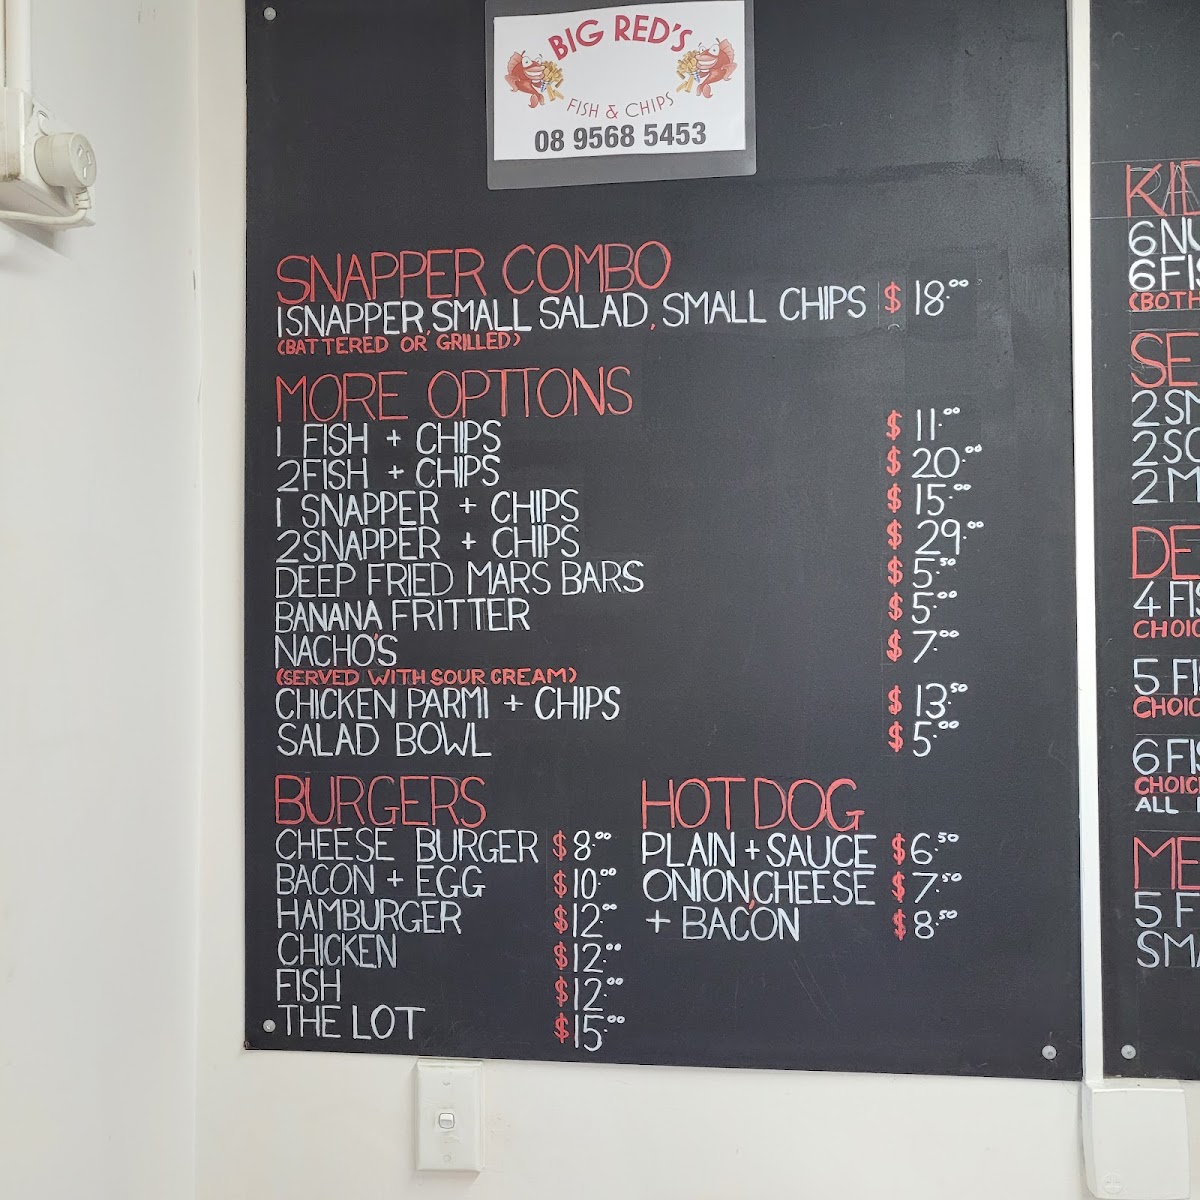 BIG RED'S
FISH & CHIPS
08 9568 5453
SNAPPER COMBO
1 SNAPPER, SMALL SALAD, SMALL CHIPS $18.00
(BATTERED OR GRILLED)
MORE OPTIONS
1 FISH + CHIPS $11.00
2 FISH + CHIPS $20.00
1 SNAPPER + CHIPS $15.00
2 SNAPPER + CHIPS $29.00
DEEP FRIED MARS BARS $5.50
BANANA FRITTER $5.00
NACHO'S $7.00
(SERVED WITH SOUR CREAM)
CHICKEN PARMI + CHIPS $13.50
SALAD BOWL $5.00
BURGERS
CHEESE BURGER $8.00
BACON + EGG $10.00
HAMBURGER $12.00
CHICKEN $12.00
FISH $12.00
THE LOT $15.00
HOT DOG
PLAIN + SAUCE $6.50
ONION, CHEESE $7.50
+ BACON $8.50
6
6
(BOTH
2
2
2
4
5
6
ALL
5